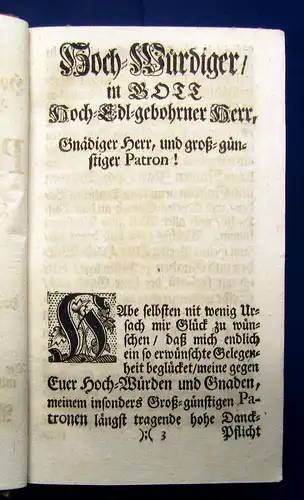 Hoch-Würdiger/
in GOTT
Hoch-Edl-gebohrner Herr,
Gnädiger Herr, und groß-gün-
stiger Patron!
HAbe selbsten nit wenig Ur-
sach mir Glück zu wün-
schen/ daß mich endlich
ein so erwünschte Gelegen-
heit beglücket/ meine gegen
Euer Hoch-Würden und Gnaden,
meinem insonders Groß-günstigen Pa-
tronen längst tragende hohe Danck-
):( 3 Pflicht